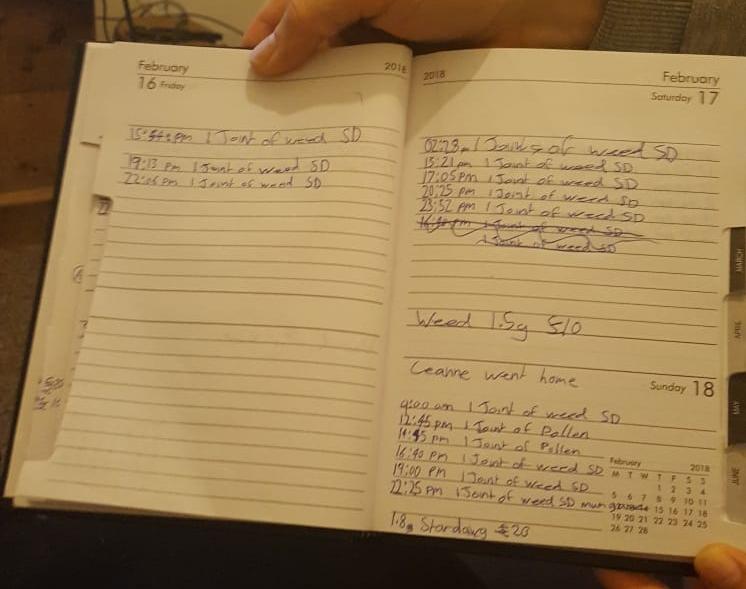 February 2018
16 Friday
pm 1 Joint of weed SD
19:13 pm 1 Joint of weed SD
22:06 pm 1 Joint of weed SD
2018 February
Saturday 17
02:23 1 Joint of weed SD
15:21 pm 1 Joint of weed SD
17:05 pm 1 Joint of weed SD
20:25 pm 1 Joint of weed SD
23:52 pm 1 Joint of weed SD
pm 1 Joint of weed SD
1 Joint of weed SD
Weed 1.5g
Leanne went home
Sunday 18
9:00 am 1 Joint of weed SD
12:45 pm 1 Joint of Pollen
14:45 pm 1 Joint of Pollen
16:40 pm 1 Joint of weed SD
19:00 pm 1 Joint of weed SD
22:25 pm 1 Joint of weed SD
1.8g Stardawg £20
February 2018
M T W T F S S
1 2 3 4
5 6 7 8 9 10 11
15 16 17 18
19 20 21 22 23 24 25
26 27 28
MARCH
APRIL
MAY
JUNE